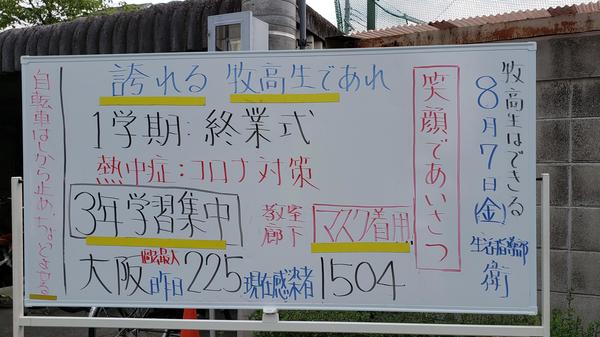 牧高生はできる
8月7日(金)
生活指導部 衛
笑顔であいさつ
誇れる 牧高生であれ
1学期:終業式
熱中症:コロナ対策
3年学習集中
教室 廊下 マスク着用
大阪 昨日 225 現在感染者 1504
自転車はしから止め、ちゃんとする